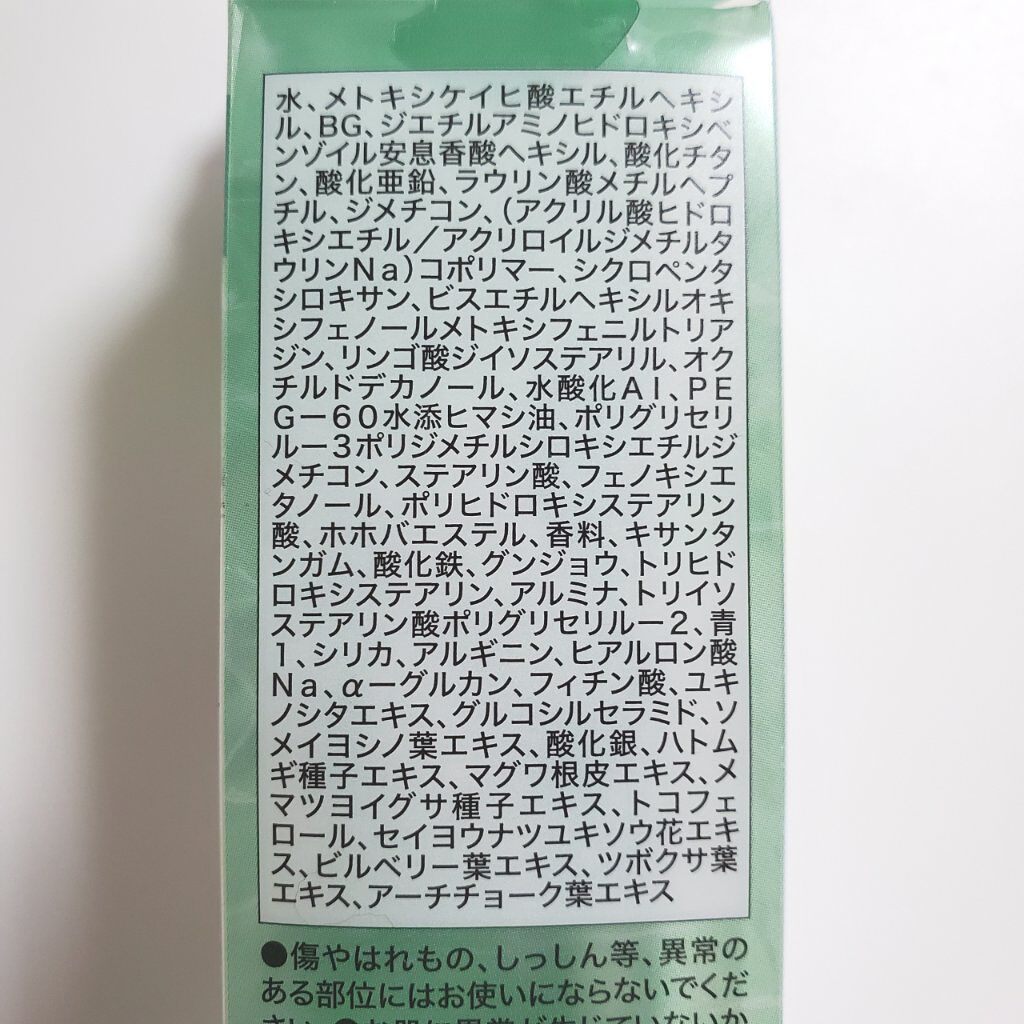 水、メトキシケイヒ酸エチルヘキシ
ル、BG、ジエチルアミノヒドロキシベ
ンゾイル安息香酸ヘキシル、酸化チタ
ン、酸化亜鉛、ラウリン酸メチルヘプ
チル、ジメチコン、(アクリル酸ヒドロ
キシエチル/アクリロイルジメチルタ
ウリンNa)コポリマー、シクロペンタ
シロキサン、ビスエチルヘキシルオキ
シフェノールメトキシフェニルトリア
ジン、リンゴ酸ジイソステアリル、オク
チルドデカノール、水酸化Al、PE
G-60水添ヒマシ油、ポリグリセリ
ル-3ポリジメチルシロキシエチルジ
メチコン、ステアリン酸、フェノキシエ
タノール、ポリヒドロキシステアリン
酸、ホホバエステル、香料、キサンタ
ンガム、酸化鉄、グンジョウ、トリヒド
ロキシステアリン、アルミナ、トリイソ
ステアリン酸ポリグリセリル-2、青
1、シリカ、アルギニン、ヒアルロン酸
Na、α-グルカン、フィチン酸、ユキ
ノシタエキス、グルコシルセラミド、ソ
メイヨシノ葉エキス、酸化銀、ハトム
ギ種子エキス、マグワ根皮エキス、メ
マツヨイグサ種子エキス、トコフェ
ロール、セイヨウナツユキソウ花エキ
ス、ビルベリー葉エキス、ツボクサ葉
エキス、アーチチョーク葉エキス
●傷やはれもの、しっしん等、異常の
ある部位にはお使いにならないでくだ